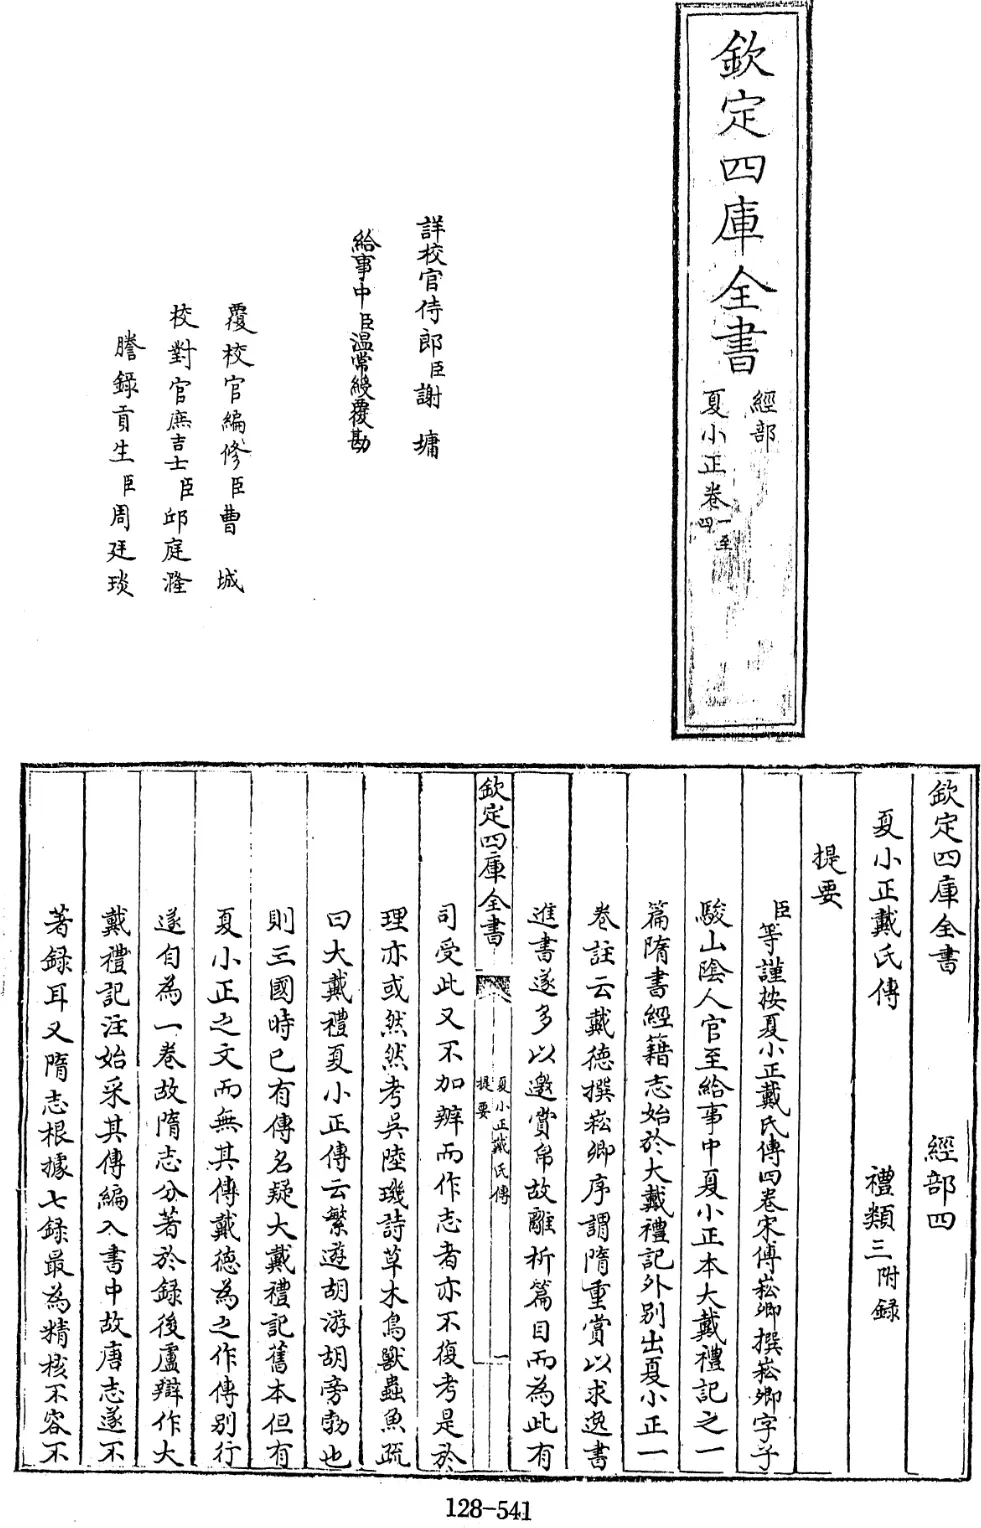 欽定四庫全書
經部
夏小正卷一至四
詳校官侍郎臣謝墉
給事中臣溫常綬覆勘
覆校官編修臣曹城
校對官庶吉士臣邱庭漋
謄錄貢生臣周廷琰
欽定四庫全書 經部四
夏小正戴氏傳 禮類三附録
提要
臣等謹按夏小正戴氏傳四卷宋傅崧卿撰崧卿字子
駿山陰人官至給事中夏小正本大戴禮記之一
篇隋書經籍志始於大戴禮記外别出夏小正一
卷註云戴徳撰崧卿序謂隋重賞以求逸書
進書遂多以邀賞帛故離析篇目而為此有
欽定四庫全書
夏小正戴氏傳
提要
一
司受此又不加辨而作志者亦不復考是於
理亦或然然考吳陸璣詩草木鳥獸蟲魚疏
曰大戴禮夏小正傳云蘩遊胡游胡旁勃也
則三國時已有傳名疑大戴禮記舊本但有
夏小正之文而無其傳戴徳為之作傳别行
遂自為一卷故隋志分著於錄後盧辯作大
戴禮記注始采其傳編入書中故唐志遂不
著録耳又隋志根據七録最為精核不容不
128-541